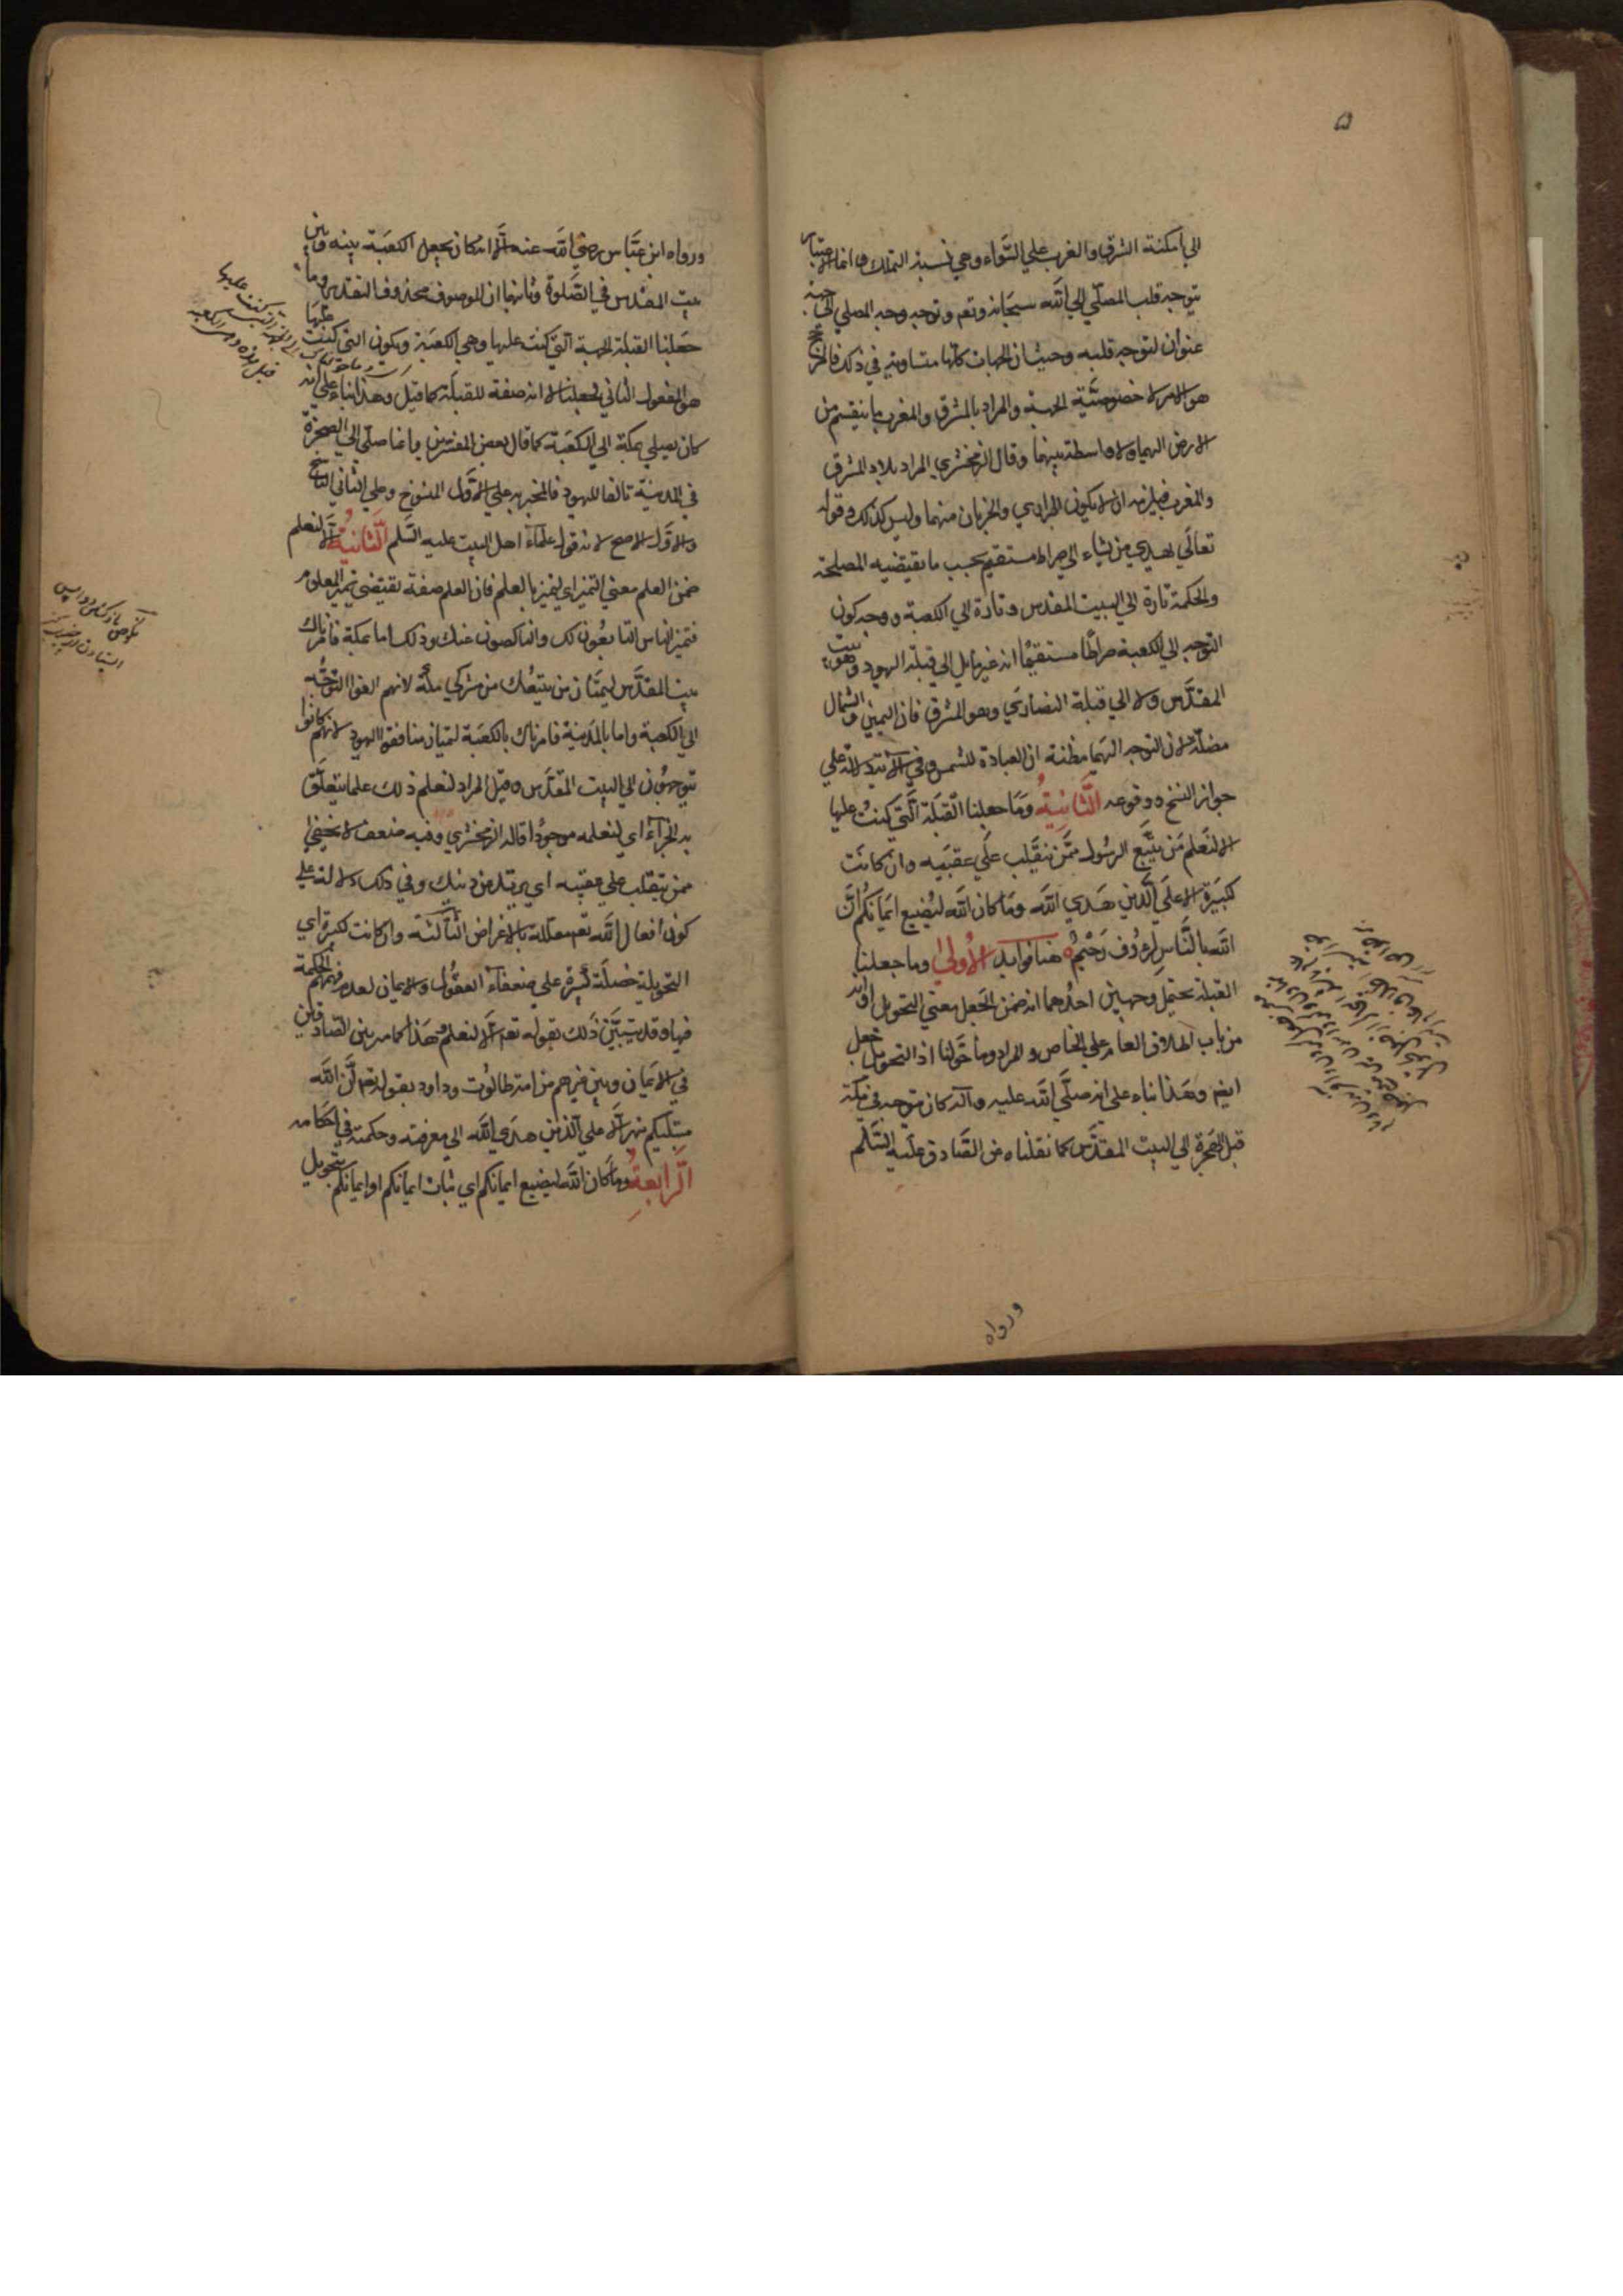 الي امكنة الشرق والغرب علي السَّواء وهي نسبة التملك وانما الاعتبار
بتوجه قلب المصلّي الي اللّه سبحانه وتعم وتوجه وجه المصلي الي جهة
عنوان لتوجه قلبه وحيث ان الجهات كلّها متساوية في ذلك فالمرجح
هو الامر لا خصوصيّة الجهة والمراد بالمشرق والمغرب ما ينقسم من
الارض اليهما ولا واسطة بينهما وقال الزمخشري المراد بلاد المشرق
والمغرب فيلزمه ان لا يكون البراري والخربان منهما وليس كذلك وقوله
تعالي يهدي من يشاء الي صراط مستقيم بحسب ما يقتضيه المصلحة
والحكمة تارة الي البيت المقدس وتارة الي الكعبة ووجه كون
التوجه الي الكعبة صراطًا مستقيمًا انه غير مايل الي قبلة اليهود وهو بيت
المقدَّس ولا الي قبلة النصارَي وهو المشرق فان اليمين والشمال
مضلّة لان التوجه اليهما مظنة ان العبادة للشمس وفي الآية دلالة علي
جواز النسخ ووقوعه الثَّانِيةُ وَمَا جعلنا القبلَة الَّتي كنتَ عليها
الا لنعلم مَن يتَّبع الرسُول ممَّن ينقَلب علَي عقبَيه وان كانَت
كبيَرة الا علَي الَّذين هَدَي اللَّه ومَا كان اللَّه ليُضيع ايمَانكُم انَّ
اللَّه بالنَّاسِ لرءُوف رَحيْمُ هنا فوايد الاُولي وما جعلنا
القبلة يحتمل وجهين احدُهما انه ضمن الجَعل معني التحويل او انه
من باب اطلاق العام علي الخاص والمراد وما حَوّلنا اذ التحويل جعل
ايضم وهَذا بناء علي انه صلَّي اللَّه عليه وآله كان يتوجه في مكّة
قبل الهَجرة الي البيت المقدَّس كما نقلناه عن الصَّادق علَيه السَّلم
ورواه
ورواه ابن عبَّاس رضي اللَّه عنه الّا انه كان يجعل الكعَبة بينه وبَين
بيت المقدس في الصَّلوة وثانيهما ان الموصوف محذوف التقدير وما
جَعلنا القبلة الجهة الّتي كنت عليها وهي الكعَبة ويكون التي كنت عليَها
هو المفعول الثاني لجعلنا لا انه صفة للقبلَة كما قيل وهذا بناء علي انه
كان يصلي بمكة الي الكعَبة كما قال بعض المفسّرين وانما صلّي الي الصخرة
في المدينة تالفا لليهود فالمخبر به علي الاوّل المنسُوخ وعلي الثاني الناسخ
والاوّل الاصح لانه قول علمآء اهل البيت عليه السَّلم الثَّانيَةُ الّا لنعلم
ضمن العلم معني التميز اي ليتميز بالعلم فان العلم صفة تقتضي تميز المعلوم
فتميز الناس التابعُون لك والناكصون عنك وذلك اما بمكة فامرناك
ببيت المقدَّس ليمتَاز من يتبعُك من مشركي مكّة لانهم الفوا التوجّه
الي الكعبة واما بالمدَينة فامرناك بالكعَبة لتميَاز منافقوا اليهود لانهم كانوا
يتوجهُون الي البيت المقدَّس وقيل المراد لنعلم ذلك علما يتعلَّق
به الجزآء اي لنعلمه موجودًا قاله الزمخشري وفيه ضعف لا يخفي
ممن ينقلب علي عقبيه اي يرتد عن دينك وفي ذلك دلالة علي
كون أفعال اللَّه تعم معلّلة بالاغراض الثالثة وان كانت كبيَرة اي
التحويلة خصلَة كبيَرة علي ضعفآء العقُول والايمان لعدم فهمهم الحكمة
فيها وقد تبيَّن ذَلك بقوله تعم الَّا لنعلم وهَذا كما مر بين الصّادقين
في الايمان وبين غيرهم من امة طالُوت وداود بقوله تعم انّ اللّه
مبتليكم بنهر الَّا علي الَّذين هَدَي اللَّه الي معرفته وحكمته في احكامه
الرَّابعَةُ وما كَان اللَّه ليضيع ايمانكم اي ثبات ايمانكم او ايمانكم بتحويل